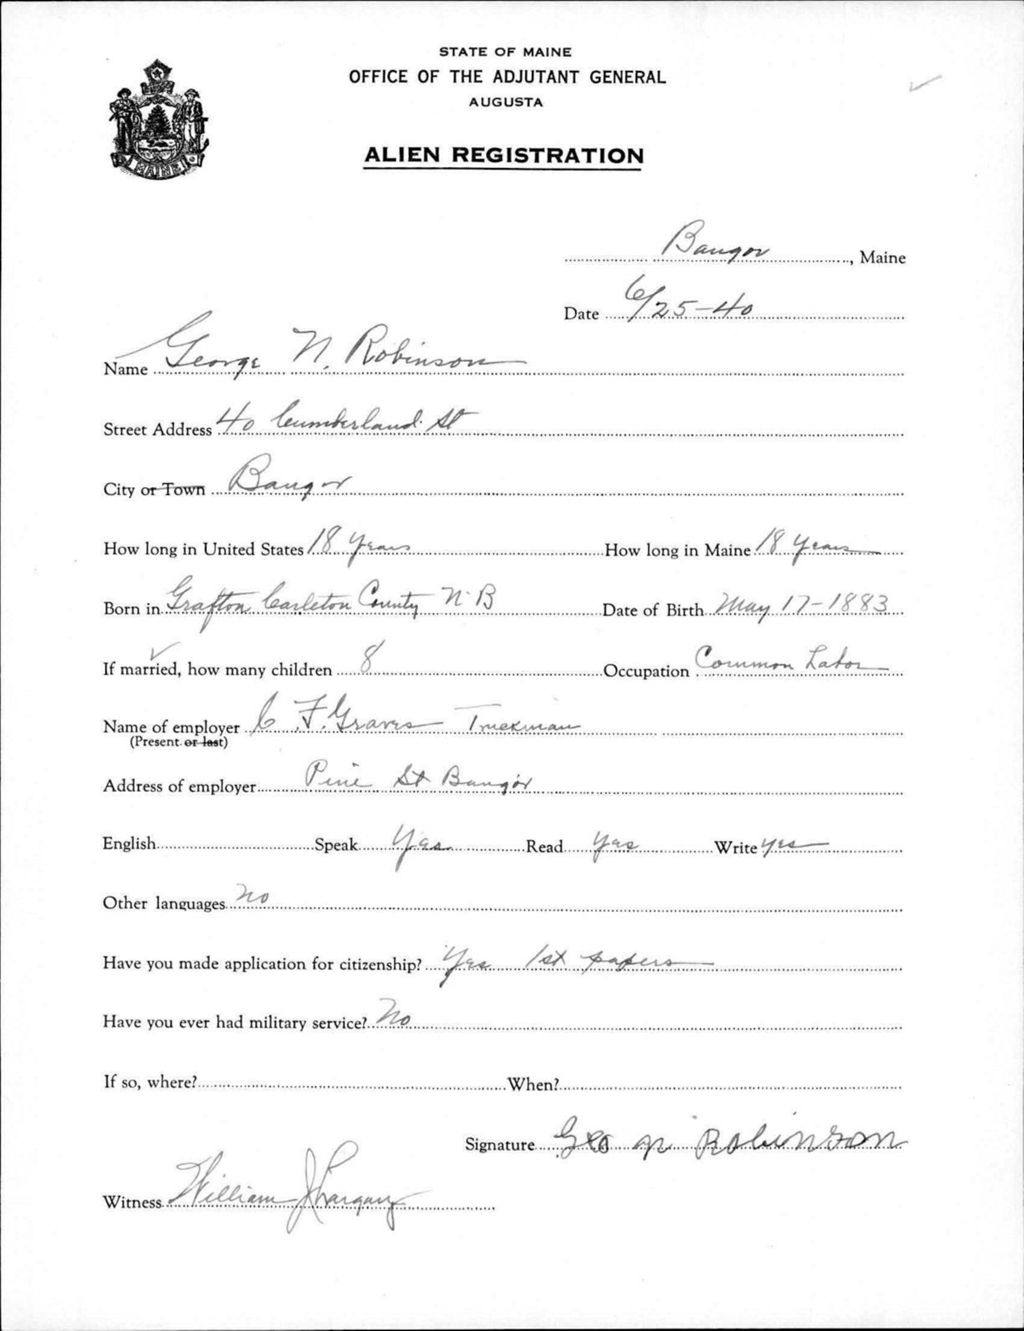 STATE OF MAINE
OFFICE OF THE ADJUTANT GENERAL
AUGUSTA
ALIEN REGISTRATION
MAINE
Bangor, Maine
Date 6/25-40
Name George N. Robinson
Street Address 40 Cumberland St
City or Town Bangor
How long in United States 18 Years How long in Maine 18 Years
Born in Grafton Carleton County N.B Date of Birth May 17-1883
If married, how many children 8 Occupation Common Labor
Name of employer C. F. Graves Truckman
(Present or last)
Address of employer Pine St Bangor
English Speak Yes Read Yes Write yes
Other languages No
Have you made application for citizenship? Yes 1st papers
Have you ever had military service? No
If so, where? When?
Signature Geo N Robinson
Witness William J